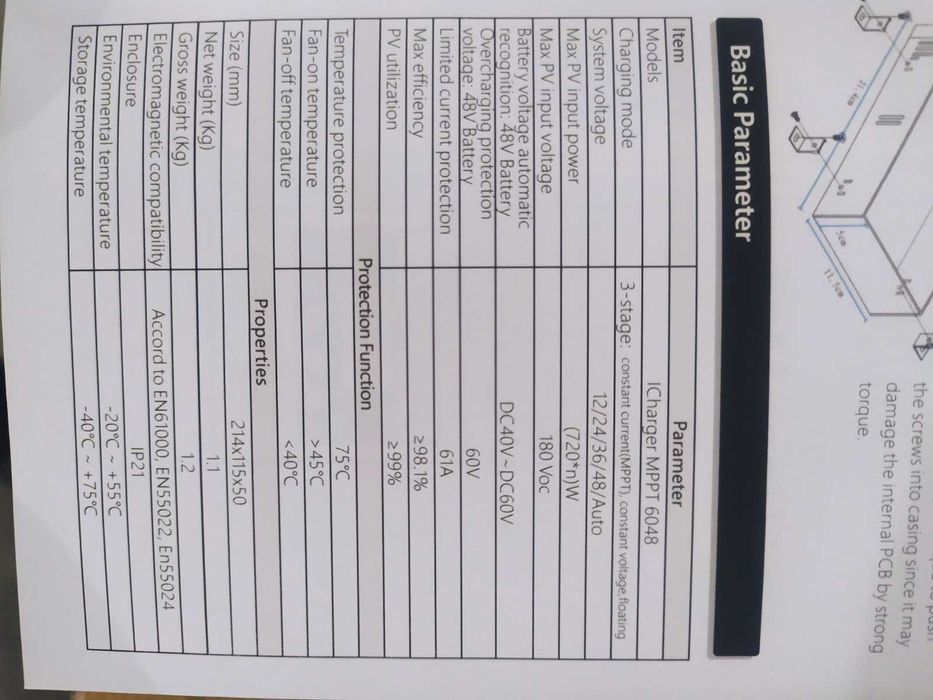 the screws into casing since it may
damage the internal PCB by strong
torque.
21.4cm
5cm
11.5cm
Basic Parameter
Item Parameter
Models ICharger MPPT 6048
Charging mode 3-stage: constant current(MPPT), constant voltage,floating
System voltage 12/24/36/48/Auto
Max PV input power (720*n)W
Max PV input voltage 180 Voc
Battery voltage automatic
recognition: 48V Battery DC40V~DC60V
Overcharging protection
voltage: 48V Battery 60V
Limited current protection 61A
Max efficiency ≥98.1%
PV utilization ≥99%
Protection Function
Temperature protection 75℃
Fan-on temperature >45℃
Fan-off temperature <40℃
Properties
Size (mm) 214x115x50
Net weight (Kg) 1.1
Gross weight (Kg) 1.2
Electromagnetic compatibility Accord to EN61000, EN55022, En55024
Enclosure IP21
Environmental temperature -20℃ ~ +55℃
Storage temperature -40℃ ~ +75℃